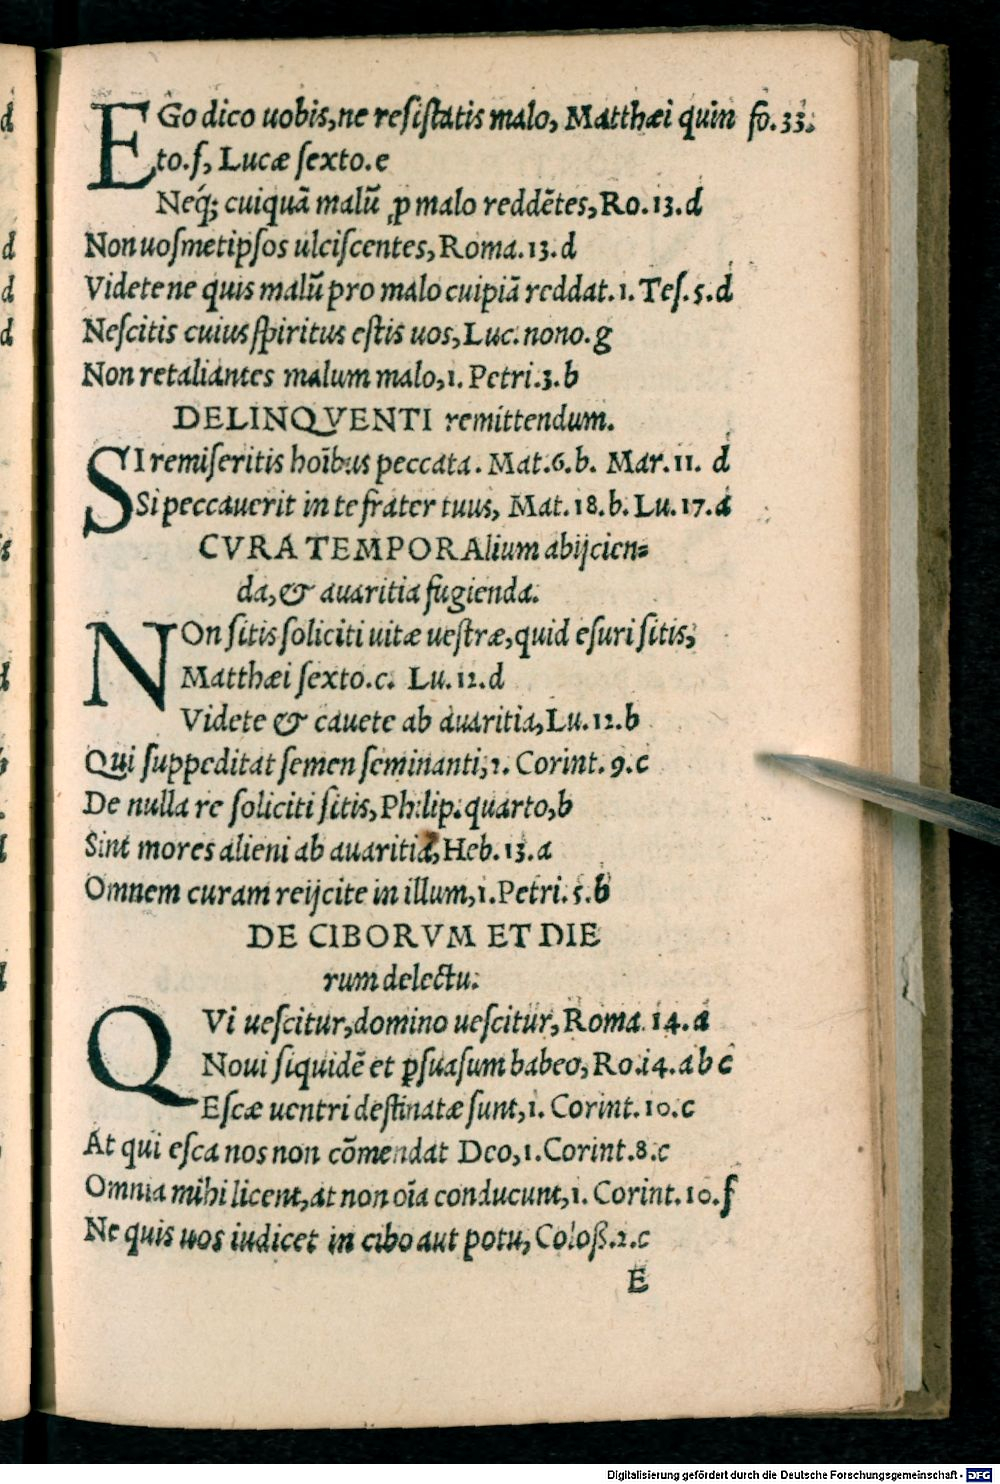 EGo dico uobis, ne resistatis malo, Matthæi quin fo. 33.
to. f, Lucæ sexto. e
Neq́; cuiquā malū ꝓ malo reddētes, Ro. 13. d
Non uosmetipsos ulciscentes, Roma. 13. d
Videte ne quis malū pro malo cuipiā reddat. 1. Tes. 5. d
Nescitis cuius spiritus estis uos, Luc. nono. g
Non retaliantes malum malo, 1. Petri. 3. b
DELINQVENTI remittendum.
SI remiseritis hoībus peccata. Mat. 6. b. Mar. 11. d
Si peccauerit in te frater tuus, Mat. 18. b. Lu. 17. a
CVRA TEMPORAlium abijcien=
da, & auaritia fugienda.
NOn sitis soliciti uitæ uestræ, quid esuri sitis,
Matthæi sexto. c. Lu. 12. d
Videte & cauete ab auaritia, Lu. 12. b
Qui suppeditat semen seminanti, 2. Corint. 9. c
De nulla re soliciti sitis, Philip. quarto, b
Sint mores alieni ab auaritia, Heb. 13. a
Omnem curam reijcite in illum, 1. Petri. 5. b
DE CIBORVM ET DIE
rum delectu.
QVi uescitur, domino uescitur, Roma. 14. a
Noui siquidē et ꝑsuasum habeo, Ro. 14. a b c
Escæ uentri destinatæ sunt, 1. Corint. 10. c
At qui esca nos non cōmendat Deo, 1. Corint. 8. c
Omnia mihi licent, at non oīa conducunt, 1. Corint. 10. f
Ne quis uos iudicet in cibo aut potu, Coloß. 2. c
E
Digitalisierung gefördert durch die Deutsche Forschungsgemeinschaft - DFG